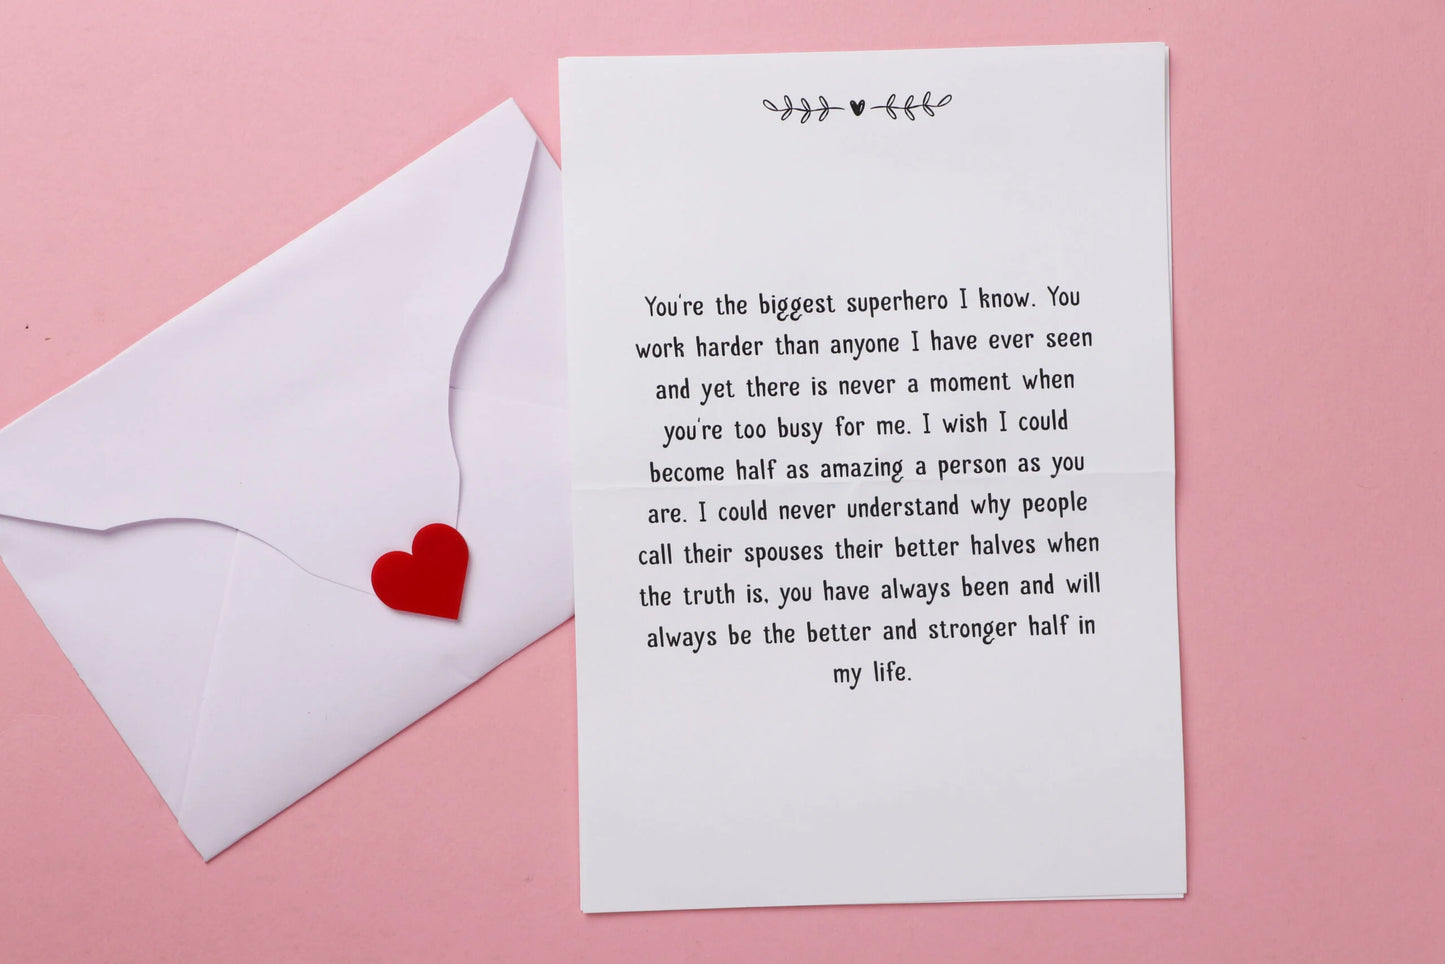 You're the biggest superhero I know. You
work harder than anyone I have ever seen
and yet there is never a moment when
you're too busy for me. I wish I could
become half as amazing a person as you
are. I could never understand why people
call their spouses their better halves when
the truth is, you have always been and will
always be the better and stronger half in
my life.